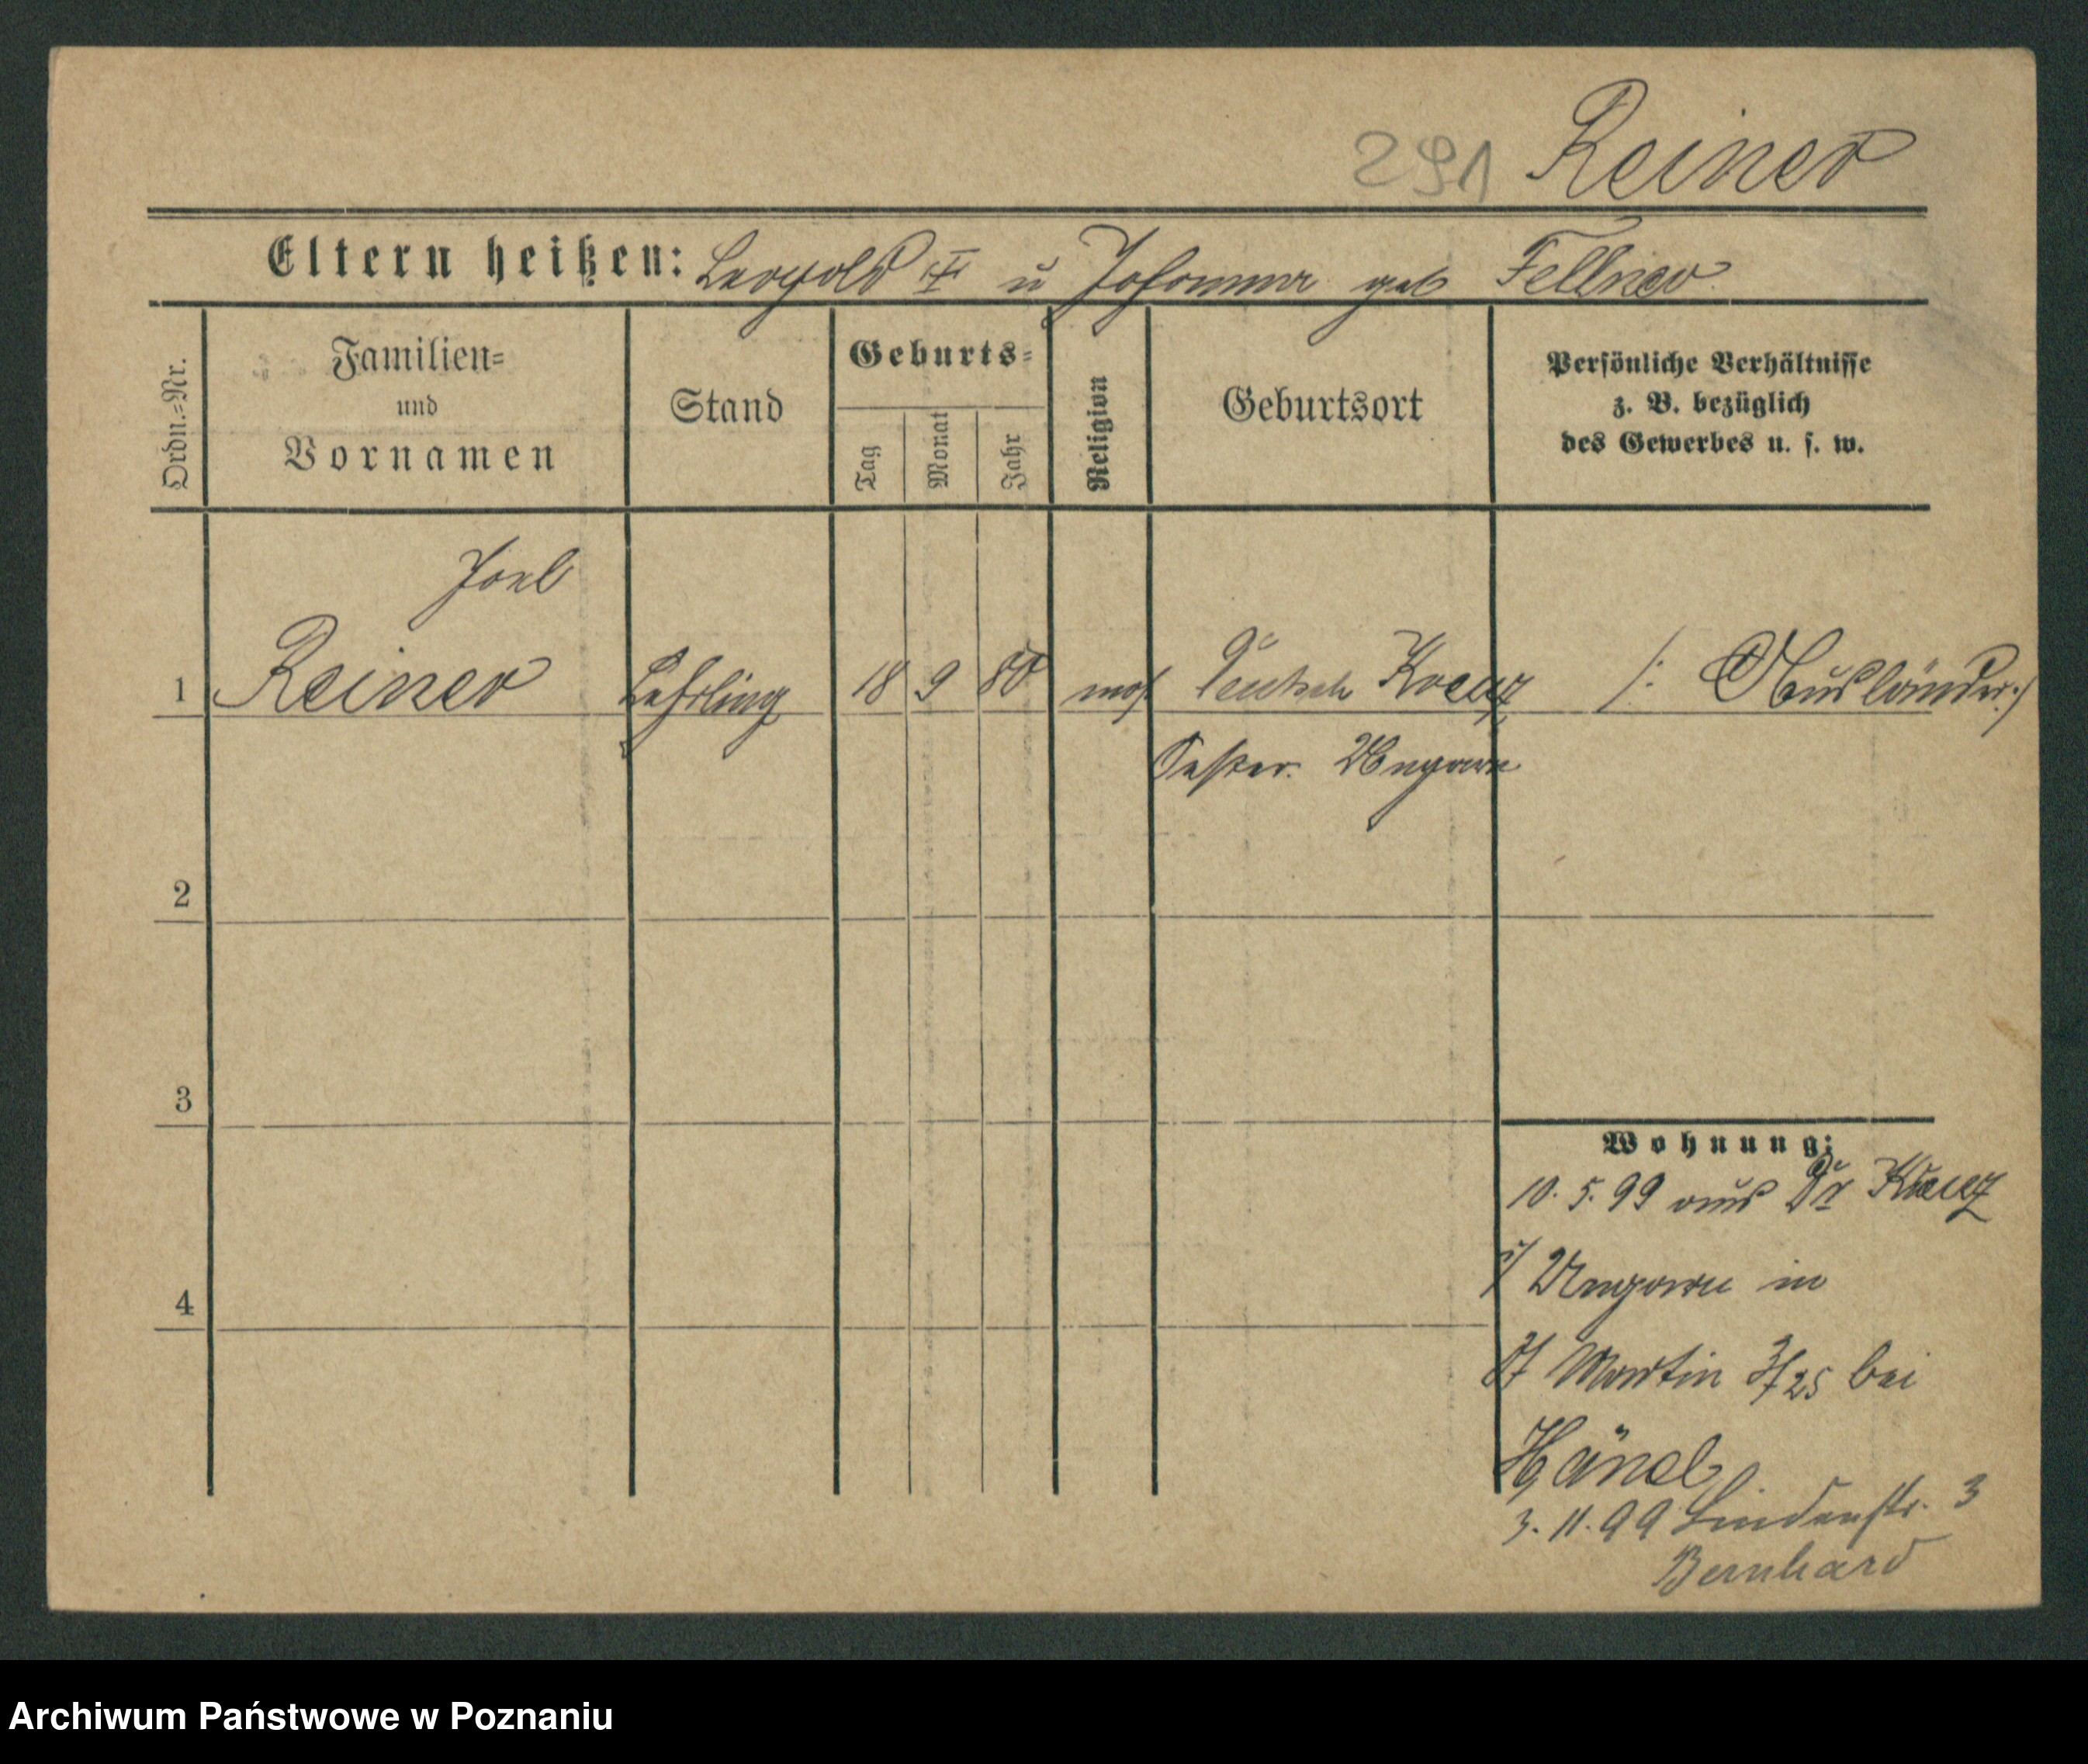 291 Reiner
Eltern heißen: Leopold † u Johanna geb Fellner
Ordn.=Nr.
Familien=
und
Vornamen
Stand
Geburts=
Tag
Monat
Jahr
Religion
Geburtsort
Persönliche Verhältnisse
z. B. bezüglich
des Gewerbes u. s. w.
Joel
1 Reiner Lehrling 18 9 80 mos. Deutsch Kreuz /: Ausländer :/
Oester. Ungarn
2
3
4
Wohnung:
10. 5. 99 aus Dt Kreuz
i/ Ungarn in
St Martin 3/25 bei
Hänel
3. 11. 99 Lindenstr. 3
Bernhard
Archiwum Państwowe w Poznaniu